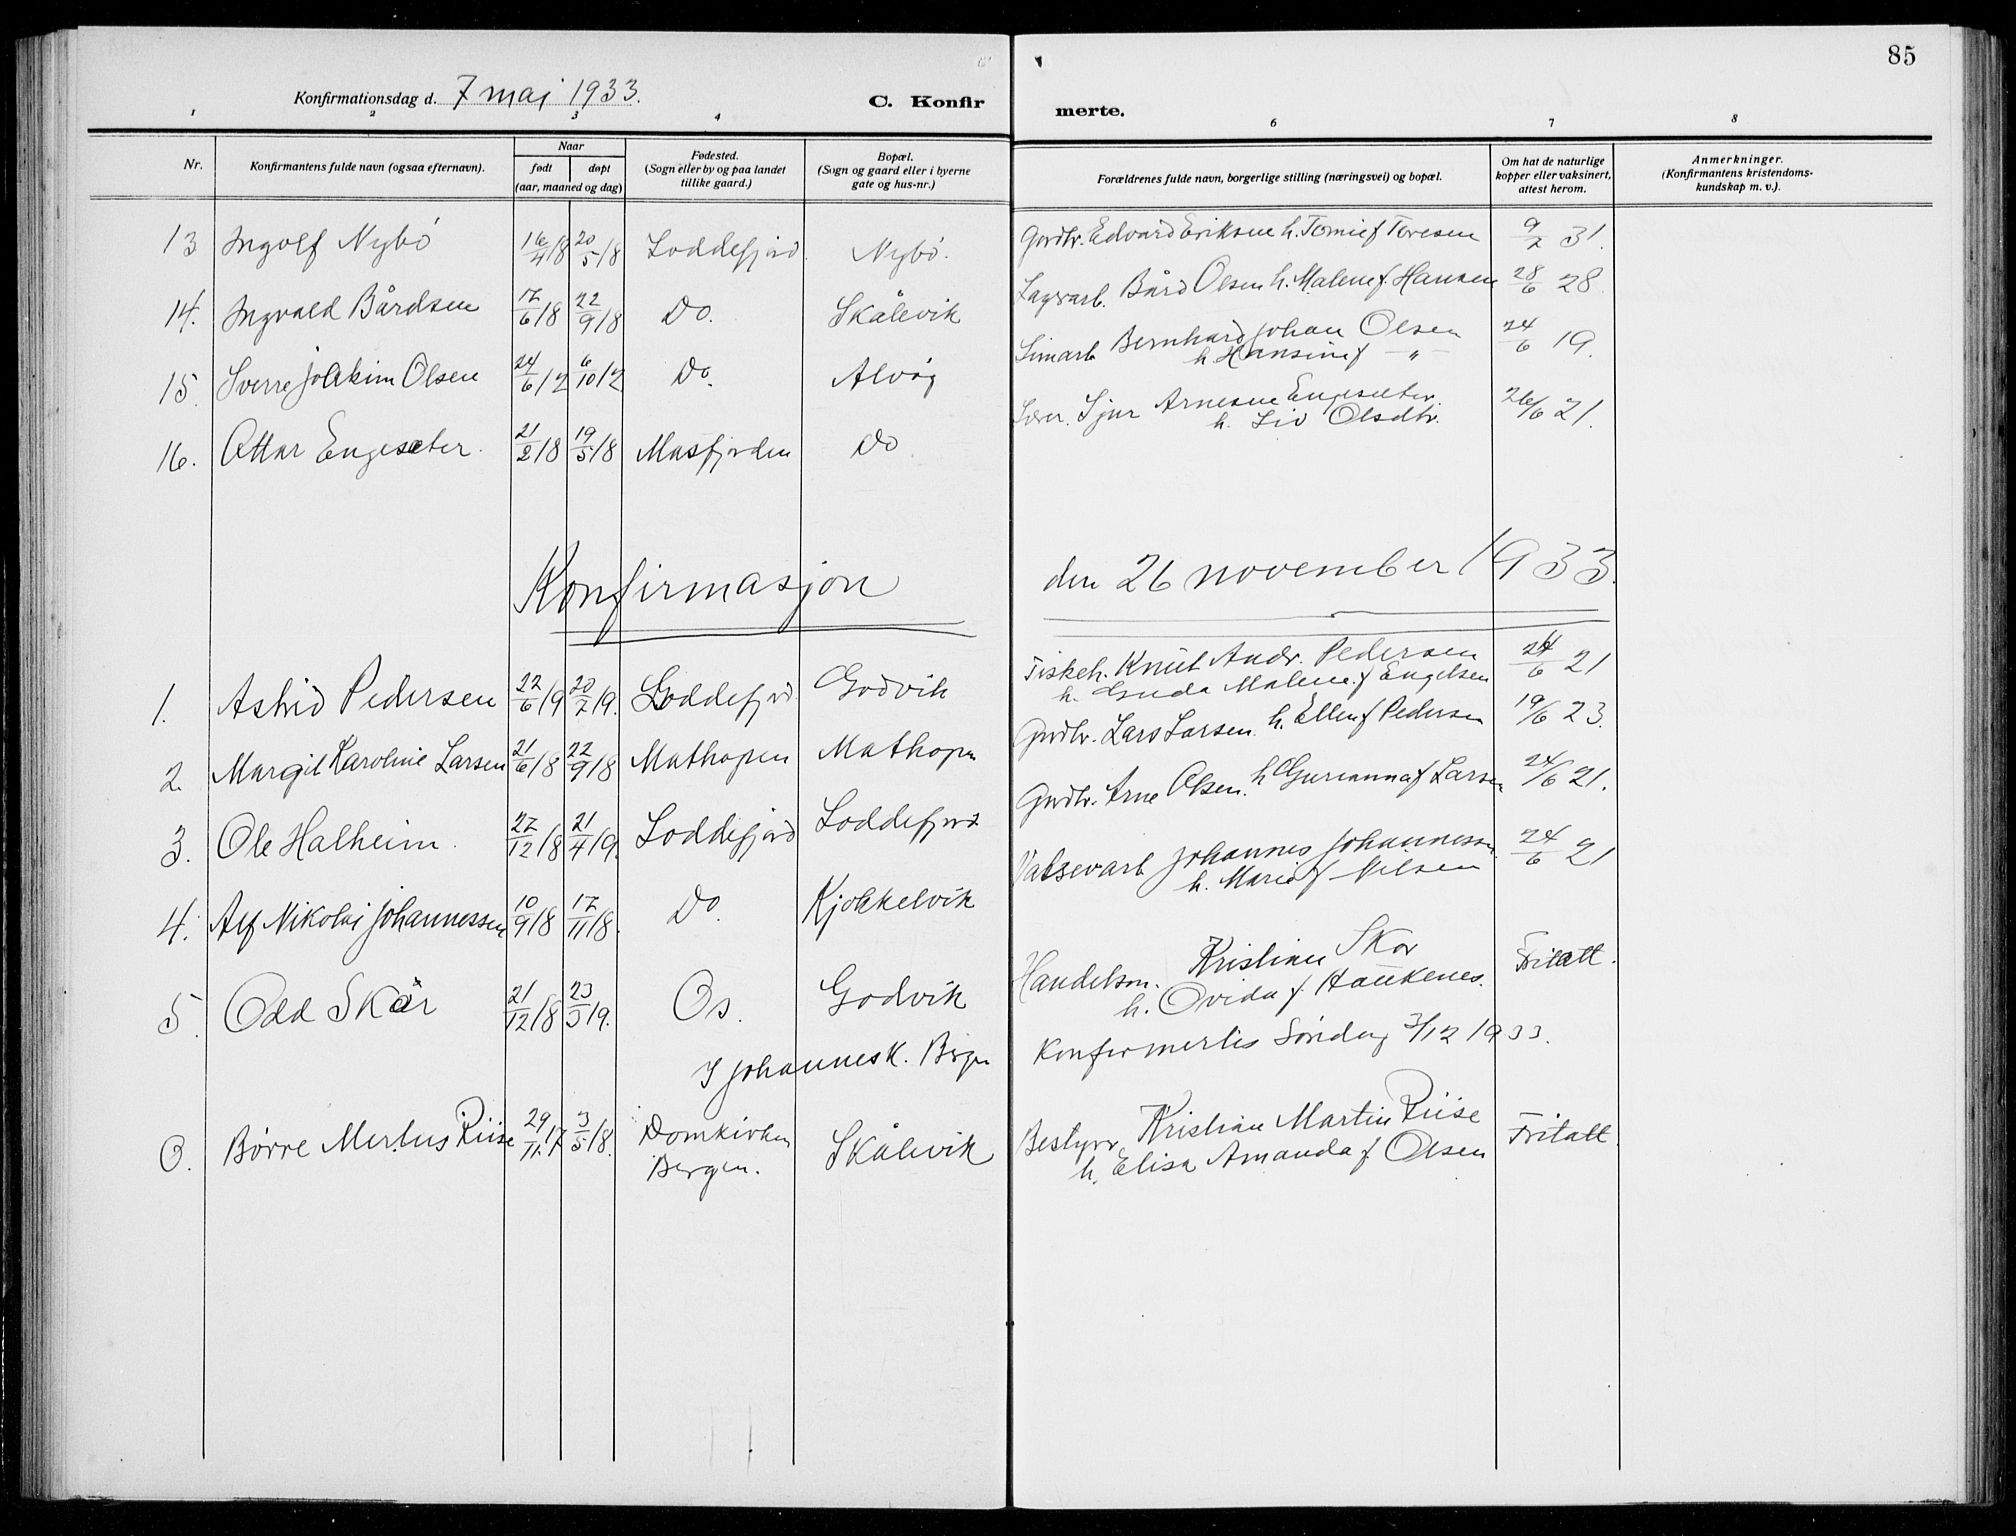 85
Konfirmationsdag d. 7 mai 1933.
C. Konfir
merte.
1 2 3 4 6 7 8
Nr.
Konfirmantens fulde navn (ogsaa efternavn).
Naar
født døpt
(aar, maaned og dag)
Fødested.
(Sogn eller by og paa landet
tillike gaard.)
Bopæl.
(Sogn og gaard eller i byerne
gate og hus-nr.)
Forældrenes fulde navn, borgerlige stilling (næringsvei) og bopæl.
Om hat de naturlige
kopper eller vaksinert,
attest herom.
Anmerkninger.
(Konfirmantens kristendoms-
kundskap m. v.).
13 Ingolf Nybö 16/4 18 20/5 18 Loddefjord Nybö. Grdbr. Edvard Eriksen h. f Toresen 9/2 31.
14. Ingvald Bårdsen 17/6 18 22/9 18 Do. Skålevik Bård Olsen h. Malene f. Hansen 28/6 28.
15. Sverre Joakim Olsen 24/6 17 6/10 17 Do. Alvög Bernhard Johan Olsen 24/6 19.
h Hansine f — " —
16. Ottar Engesæter. 21/2 18 19/5 18 Masfjorden Do Sjur Arnesen Engesæter. 26/6 21.
h. Liv Olsdtr.
Konfirmasjon den 26 november 1933.
1. Astrid Pedersen 22/6 19 20/7 19. Loddefjord Godvik Fiskeh. Knut Andr. Pedersen 24/6 21
h. Guda Malene f Engelsen
2. Margit Karoline Larsen 21/6 18 22/9 18 Mathopen Mathopen Grdbr. Lars Larsen. h. Ellen f Pedersen 19/6 23.
3. Ole Halheim. 27/12 18 21/4 19. Loddefjord Loddefjord Grdbr. Arne Olsen. h Gurianna f Larsen 24/6 21.
4. Alf Nikolai Johannessen 10/9 18 17/11 18. Do. Kjökkelvik Johannes Johannessen 24/6 21
h. Marie f Nilsen
5. Odd Skår 21/12 18 23/3 19. Os. Godvik Handelsm. Kristian Skor Fritatt.
h. Ovida f. Haukenes.
I Johannesk. Bergen konfirmertes Söndag 3/12 1933.
6. Börre Mertus Riise 29/11 17 3/5 18. Domkirken Skålevik Bestyrer Kristian Martin Riise Fritatt.
Bergen. h. Elisa Amanda f. Olsen